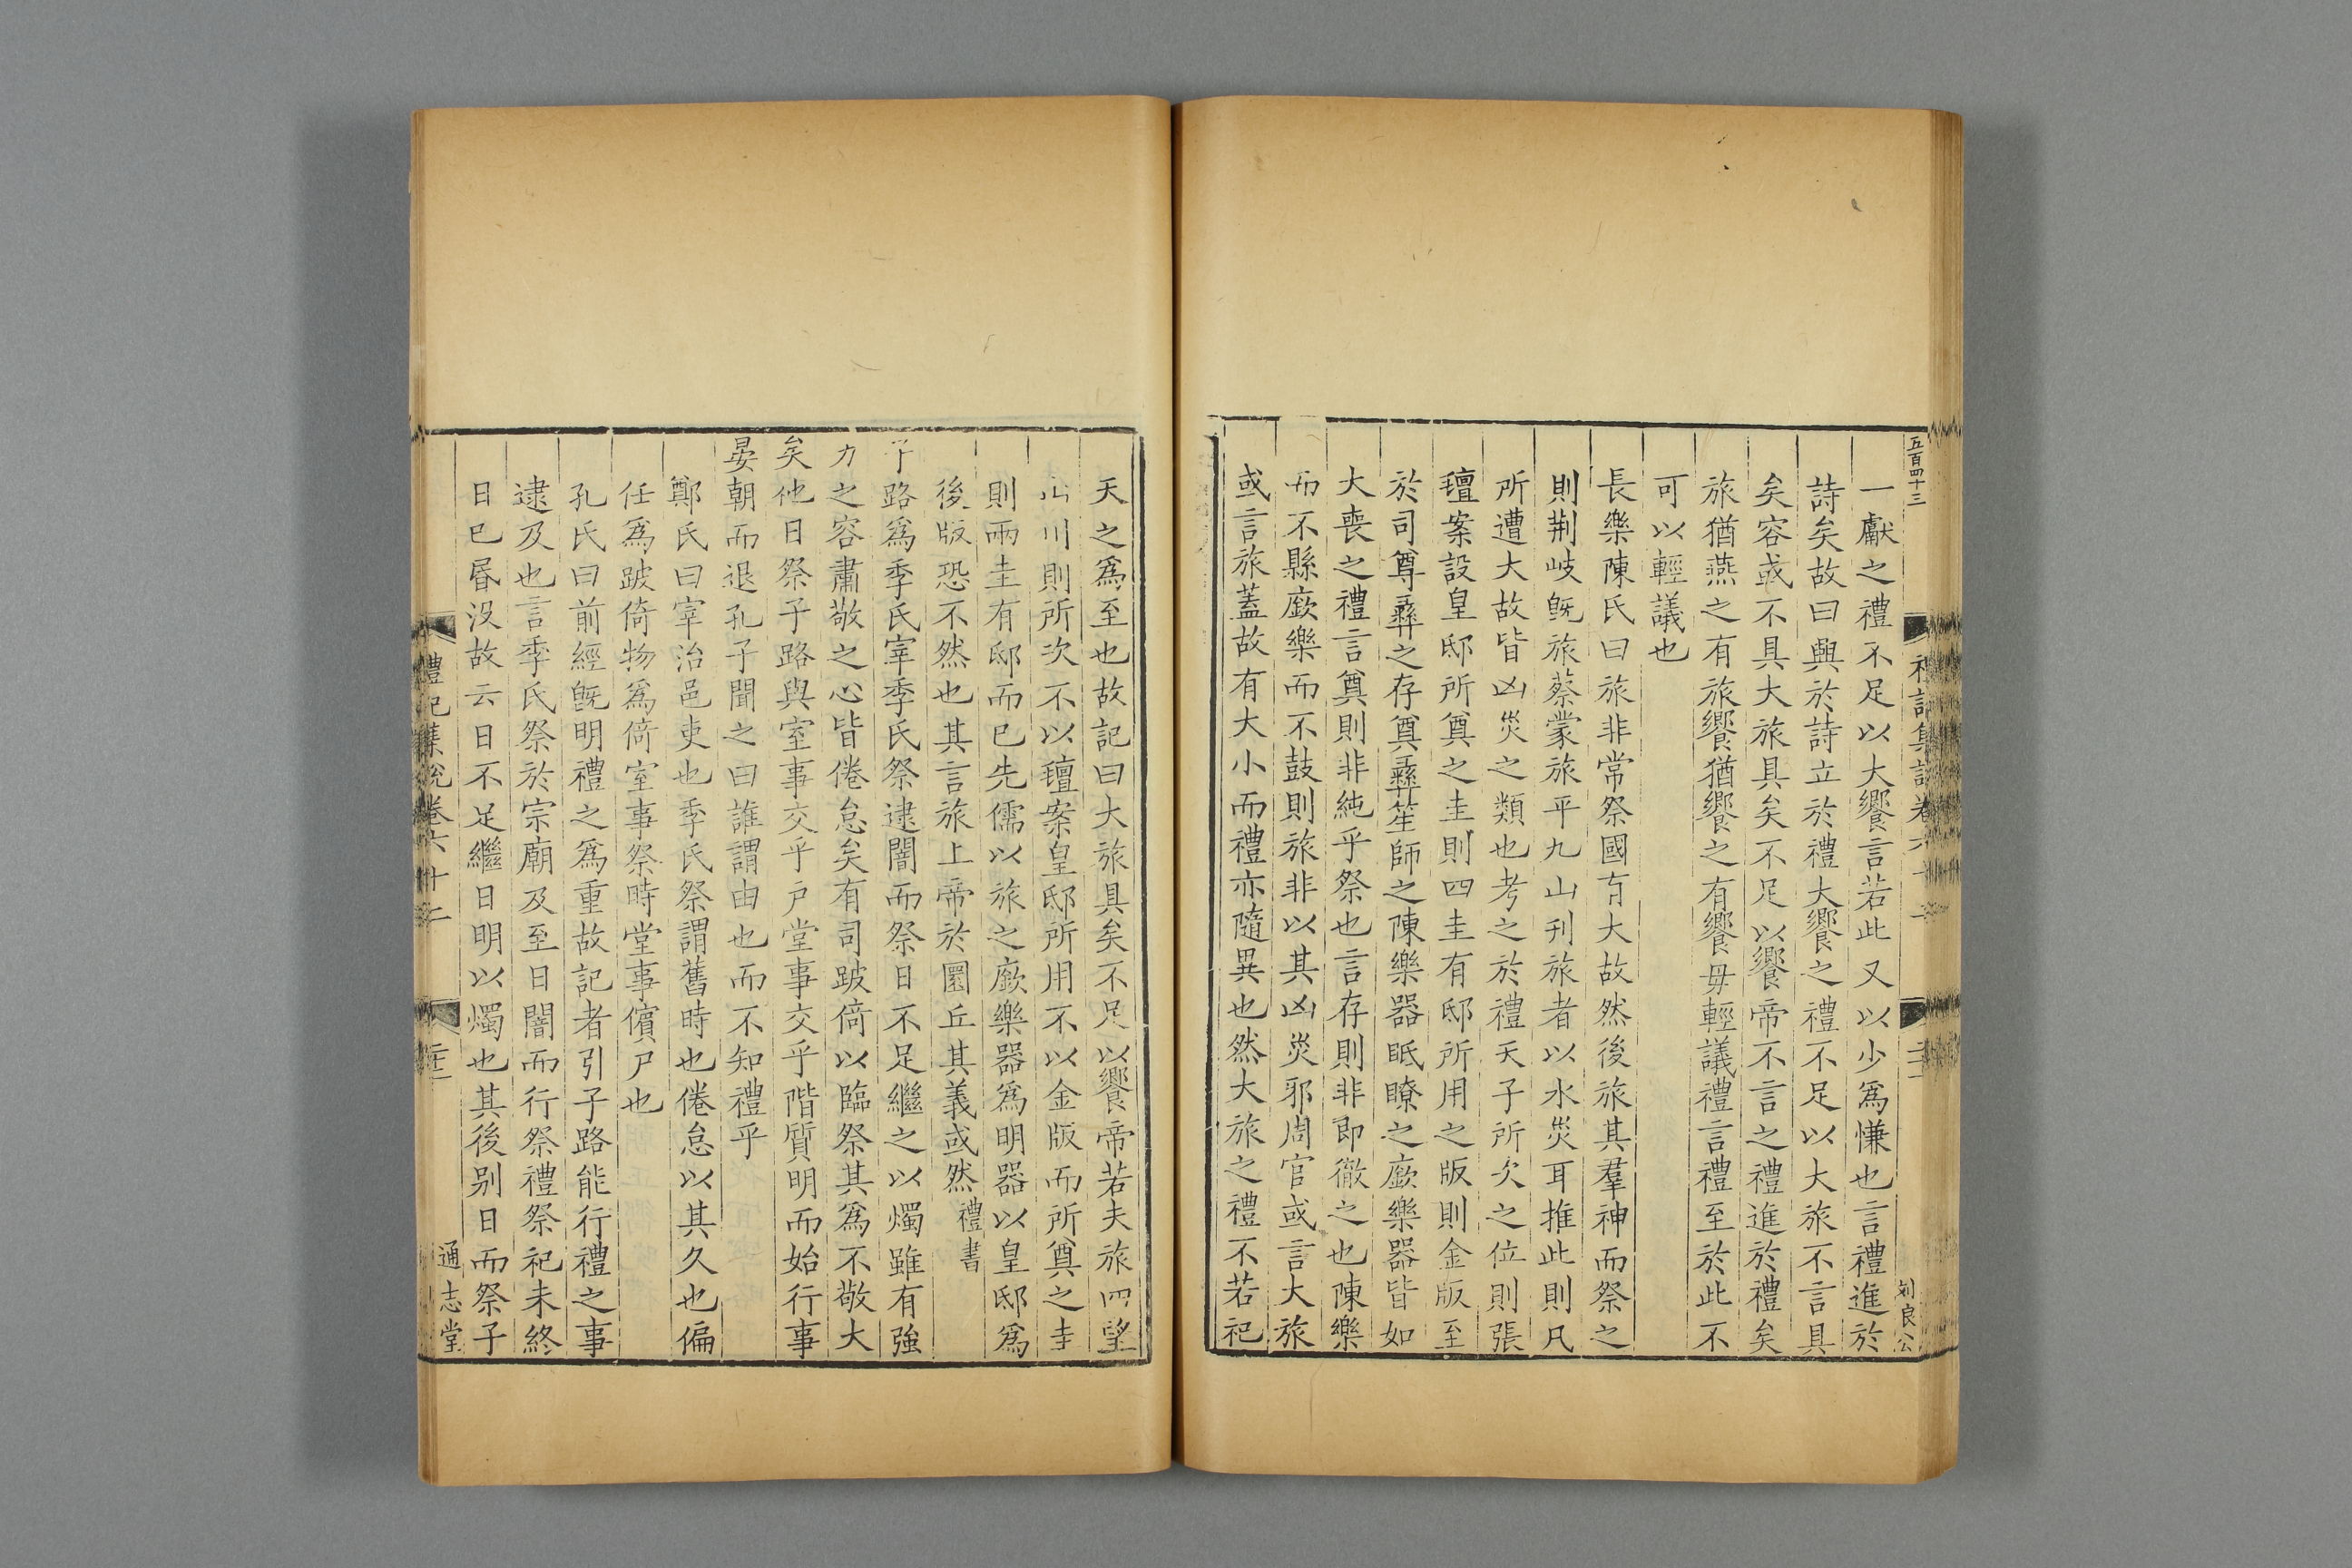 五百四十三
一獻之禮不足以大饗言若此又以少爲慊也言禮進於
詩矣故曰興於詩立於禮大饗之禮不足以大旅不言具
矣容或不具大旅具矣不足以饗帝不言之禮進於禮矣
旅猶燕之有旅饗猶饗之有饗毋輕議禮言禮至於此不
可以輕議也
長樂陳氏曰旅非常祭國有大故然後旅其羣神而祭之
則荆岐旣旅蔡蒙旅平九山刋旅者以水災耳推此則凡
所遭大故皆凶災之類也考之於禮天子所次之位則張
氊案設皇邸所奠之圭則四圭有邸所用之版則金版至
於司尊彝之存奠彝笙師之陳樂器眡瞭之廞樂器皆如
大喪之禮言奠則非純乎祭也言存則非即徹之也陳樂
而不縣廞樂而不鼓則旅非以其凶災邪周官或言大旅
或言旅蓋故有大小而禮亦隨異也然大旅之禮不若祀
天之爲至也故記曰大旅具矣不足以饗帝若夫旅四望
山川則所次不以氊案皇邸所用不以金版而所奠之圭
則兩圭有邸而已先儒以旅之廞樂器爲明器以皇邸爲
後版恐不然也其言旅上帝於圜丘其義或然禮書
子路爲季氏宰季氏祭逮闇而祭日不足繼之以燭雖有強
力之容肅敬之心皆倦怠矣有司跛倚以臨祭其爲不敬大
矣他日祭子路與室事交乎戶堂事交乎階質明而始行事
晏朝而退孔子聞之曰誰謂由也而不知禮乎
鄭氏曰宰治邑吏也季氏祭謂舊時也倦怠以其久也偏
任爲跛倚物爲倚室事祭時堂事儐尸也
孔氏曰前經旣明禮之爲重故記者引子路能行禮之事
逮及也言季氏祭於宗廟及至日闇而行祭禮祭祀未終
日已昬没故云日不足繼日明以燭也其後别日而祭子
禮記集說卷六十二
通志堂